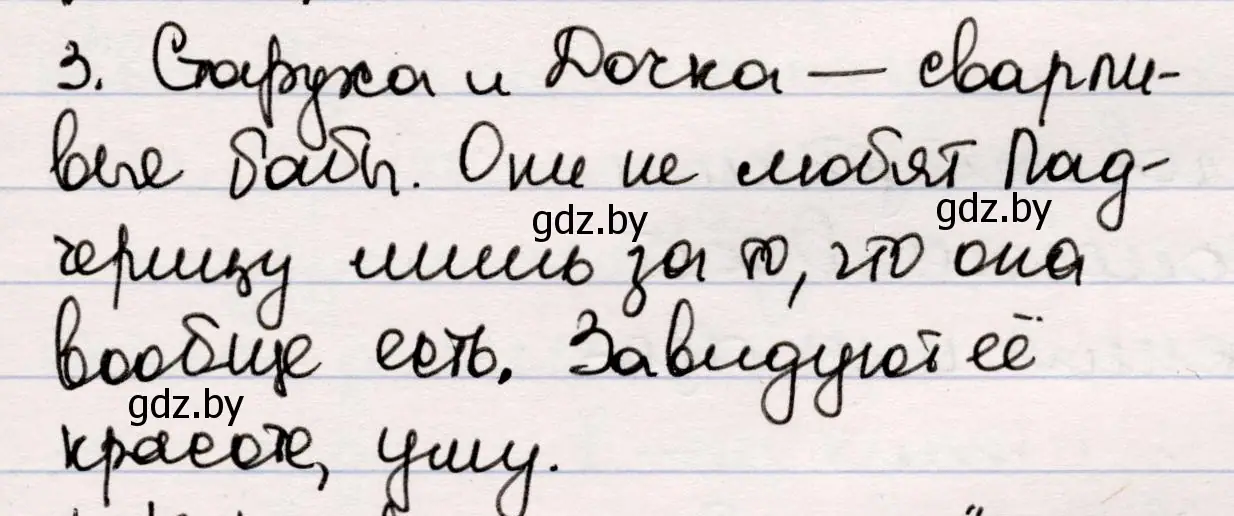 3. Старуха и Дочка — сварли-
вые бабы. Они не любят Пад-
gdz.by gdz.by
черицу лишь за то, что она
вообще есть. Завидуют её
gdz.by
красоте, уму.